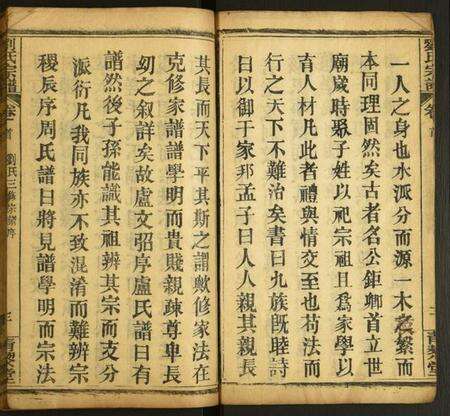 劉氏宗譜
卷首
一人之身也水派分而源一木老繁而
本同理固然矣古者名公鉅卿首立世
廟歲時聚子姓以祀宗祖且為家學以
育人材凡此者禮與情交至也苟法而
行之天下不難治矣書曰九族既睦詩
曰以御于家邦孟子曰人人親其親長
其長而天下平其斯之謂歟修家法在
克修家譜譜學明而貴賤親疎尊卑長
幼之叙詳矣故盧文弨序盧氏譜曰有
譜然後子孫能識其祖辨其宗而支分
派衍凡我同族亦不致混淆而難辨宗
稷辰序周氏譜曰將見譜學明而宗法
劉氏宗譜
卷首
劉氏三修宗譜序
三
青藜堂